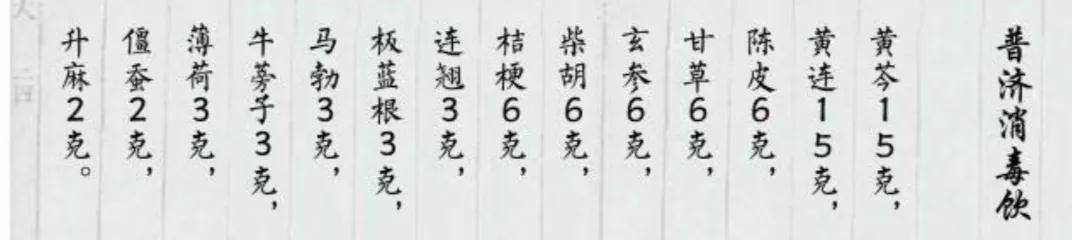 普济消毒饮
黄芩15克，
黄连15克，
陈皮6克，
甘草6克，
玄参6克，
柴胡6克，
桔梗6克，
连翘3克，
板蓝根3克，
马勃3克，
牛蒡子3克，
薄荷3克，
僵蚕2克，
升麻2克。